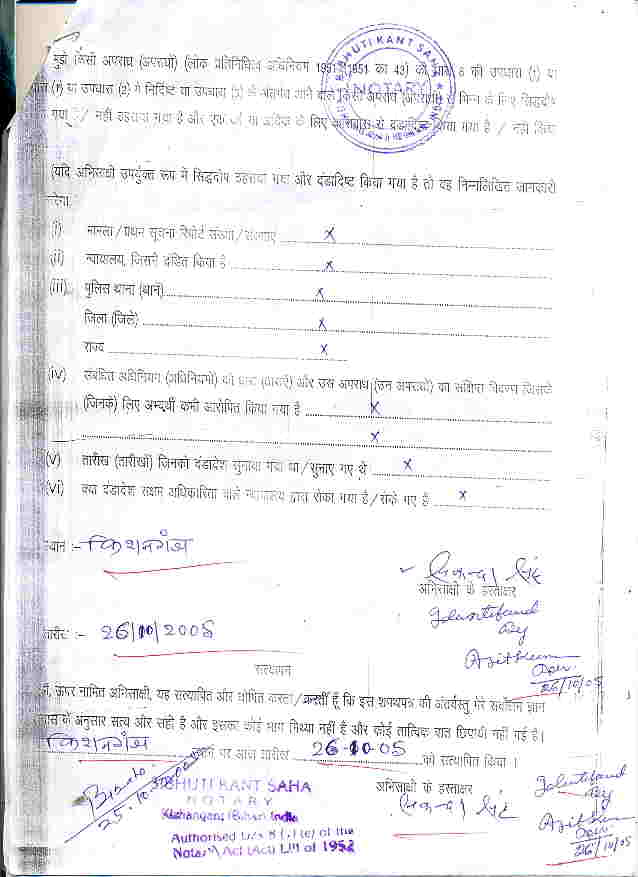 मुझे किसी अपराध (अपराधों) (लोक प्रतिनिधित्व अधिनियम 1951 (1951 का 43) की धारा 8 की उपधारा (1) या
(1) या उपधारा (2) में निर्दिष्ट या उपधारा (3) के अंतर्गत आने वाले किसी अपराध (अपराधों) से भिन्न के लिए सिद्धदोष
गया / नहीं ठहराया गया है और एक वर्ष या अधिक के लिए कारावास से दंडादिष्ट किया गया है / नहीं किया
BHUTI KANT SAHA
NOTARY
(यदि अभिसाक्षी उपर्युक्त रूप में सिद्धदोष ठहराया गया और दंडादिष्ट किया गया है तो वह निम्नलिखित जानकारी
देगा:
(i) मामला/प्रथम सूचना रिपोर्ट संख्या/संख्याएं x
(ii) न्यायालय, जिसने दंडित किया है x
(iii) पुलिस थाना (थाने) x
जिला (जिले) x
राज्य x
(iv) संबंधित अधिनियम (अधिनियमों) की धारा (धाराएँ) और उस अपराध (उन अपराधों) का संक्षिप्त विवरण जिसके
(जिनके) लिए अभ्यर्थी कभी आरोपित किया गया है x
x
(v) तारीख (तारीखों) जिनको दंडादेश सुनाया गया था/सुनाए गए थे x
(vi) क्या दंडादेश सक्षम अधिकारिता वाले न्यायालय द्वारा रोका गया है/रोके गए हैं x
स्थान :- किशनगंज
अभिसाक्षी के हस्ताक्षर
Identified
By
तारीख :- 26/10/2005
26/10/05
सत्यापन
मैं, ऊपर नामित अभिसाक्षी, यह सत्यापित और घोषित करता/करती हूँ कि इस शपथपत्र की अंतर्वस्तु मेरे सर्वोत्तम ज्ञान
के अनुसार सत्य और सही है और इसका कोई भाग मिथ्या नहीं है और कोई तात्विक बात छिपायी नहीं गई है।
किशनगंज स्थान पर आज तारीख 26-10-05 को सत्यापित किया ।
BIBHUTI KANT SAHA
NOTARY
Kishanganj (Bihar) India
Authorised U/s 8 (1) (e) of the
Notary Act (Act) LIII of 1952
अभिसाक्षी के हस्ताक्षर
Identified
By
26/10/05